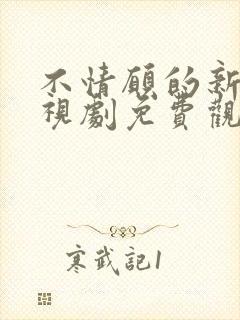 不情願的新
視劇免費觀
寒武記1